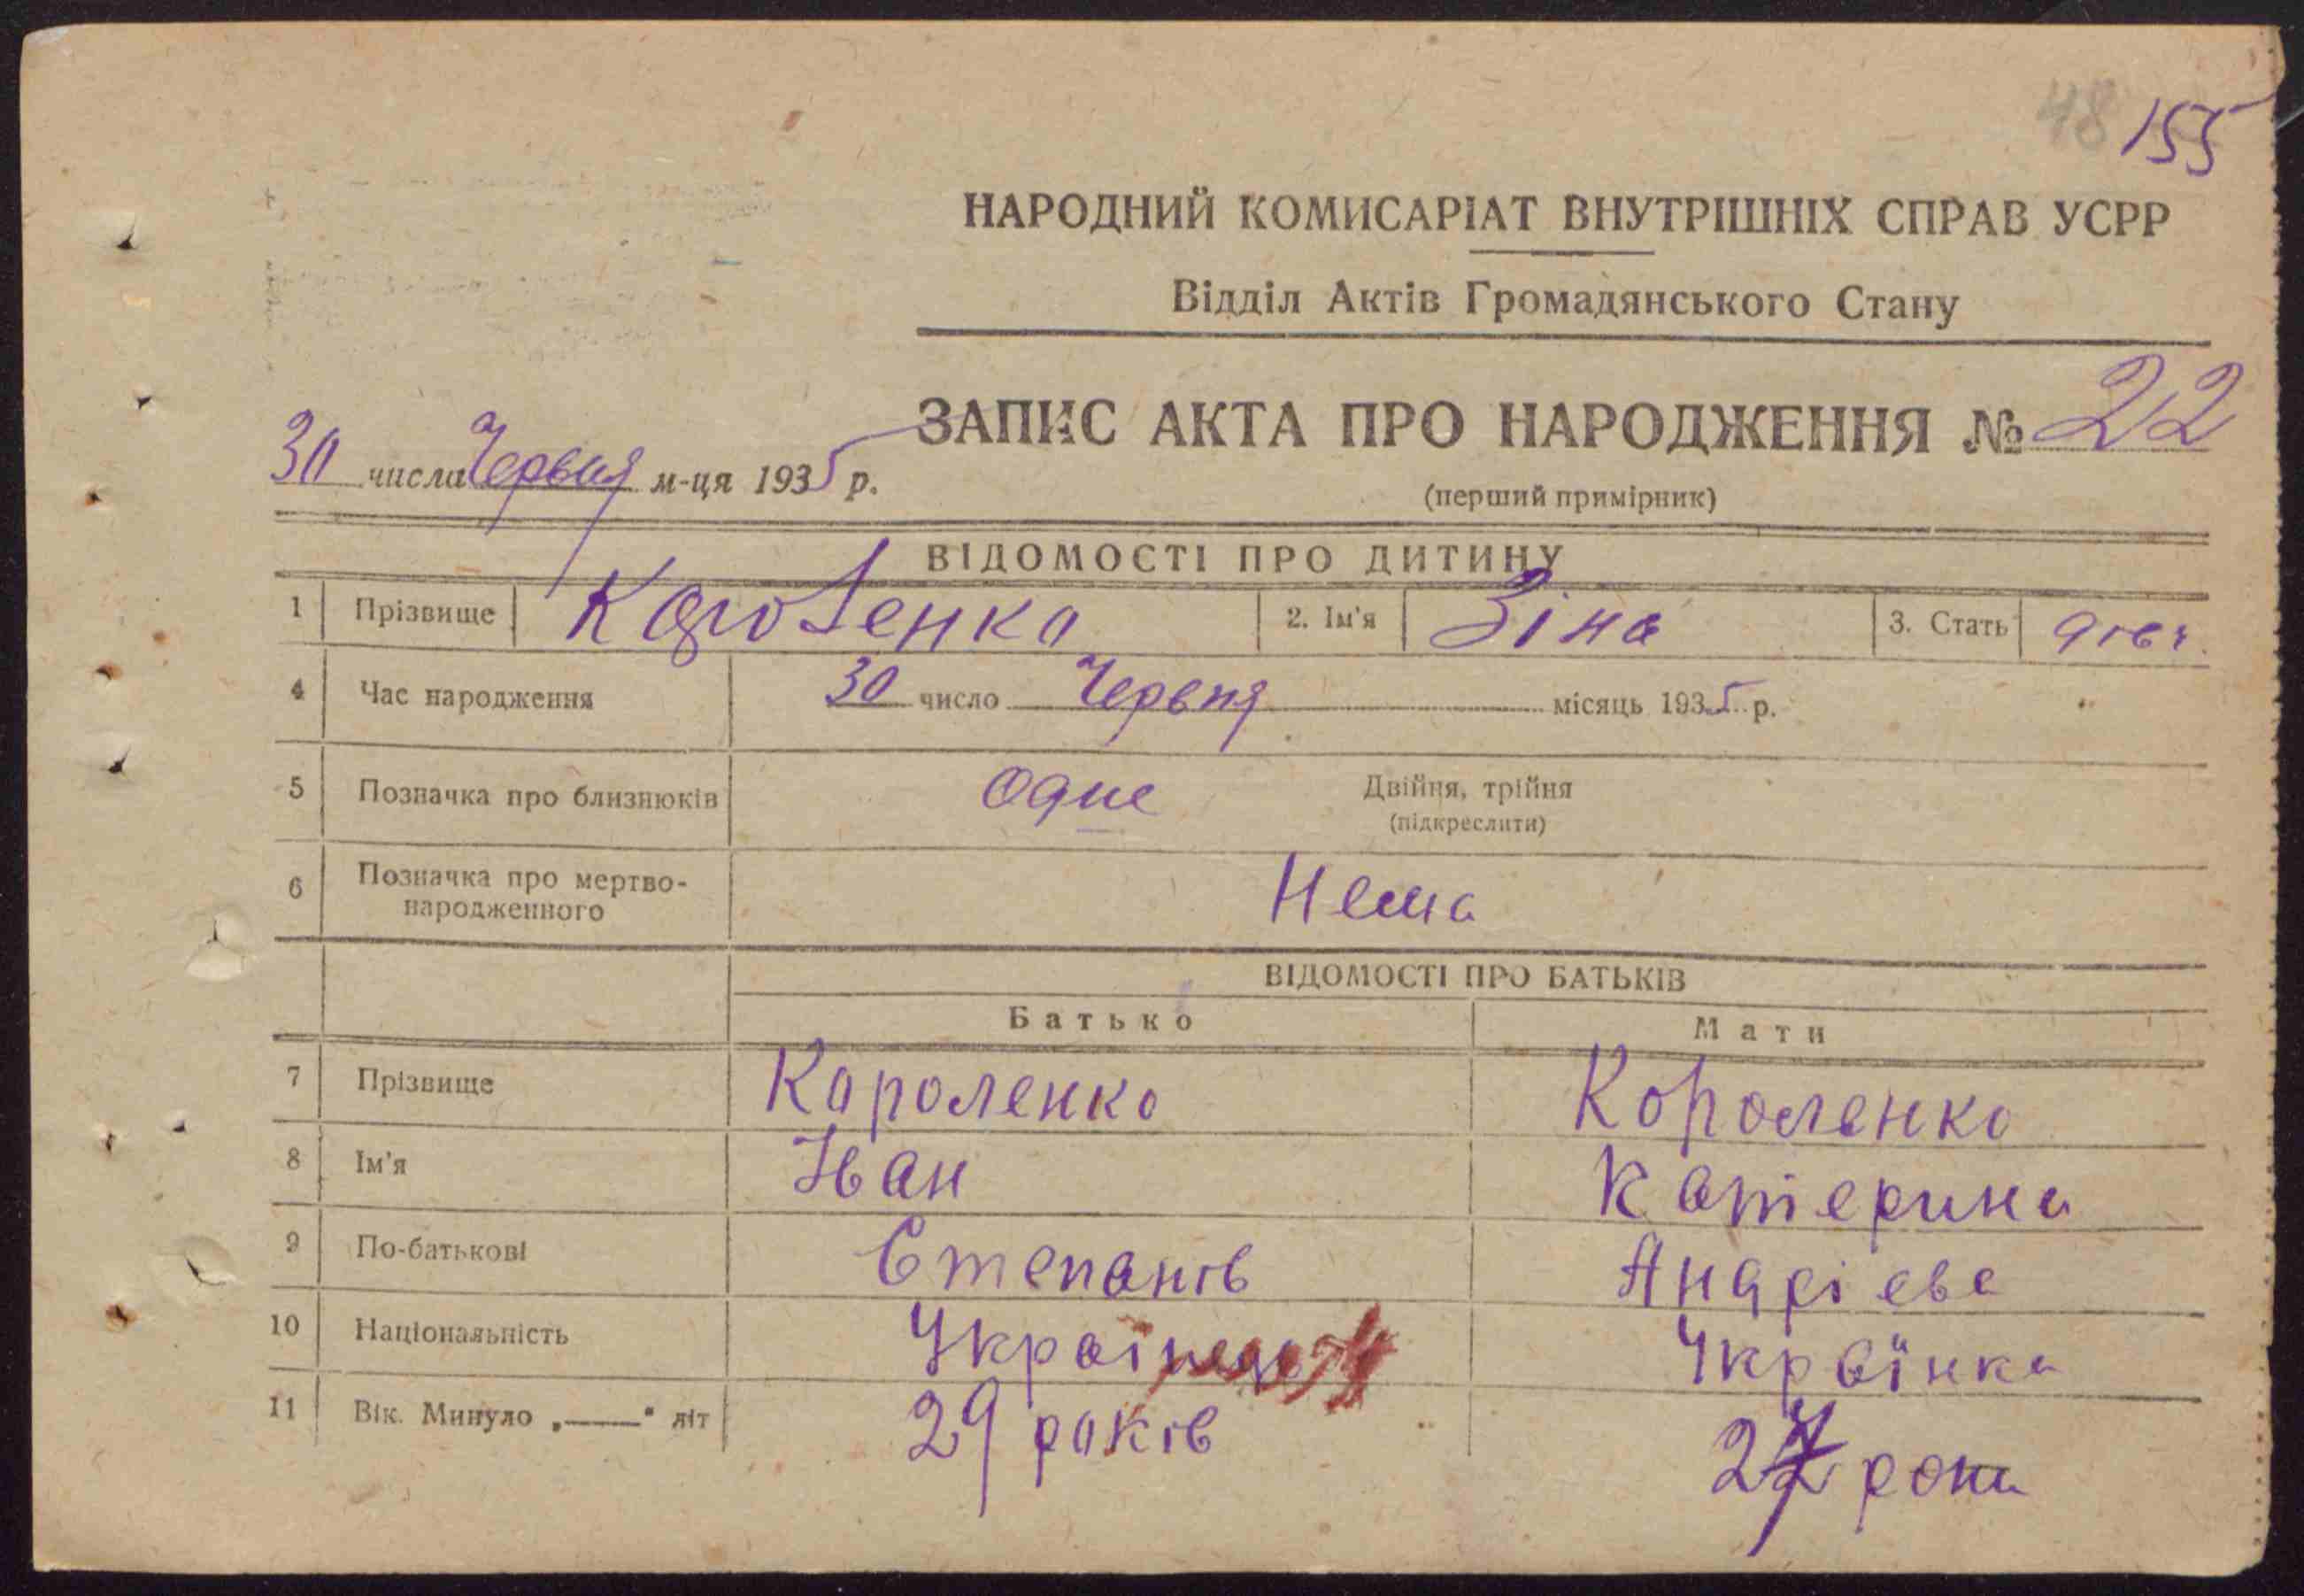 48 155
НАРОДНИЙ КОМИСАРІАТ ВНУТРІШНІХ СПРАВ УСРР
Відділ Актів Громадянського Стану
ЗАПИС АКТА ПРО НАРОДЖЕННЯ № 22
30 числа Червня м-ця 1935 р.
(перший примірник)
ВІДОМОСТІ ПРО ДИТИНУ
1 Прізвище Короленко 2. Ім'я Зіна 3. Стать дівч.
4 Час народження 30 число Червня місяць 1935 р.
5 Позначка про близнюків Одне Двійня, трійня
(підкреслити)
6 Позначка про мертво-
народженного Нема
ВІДОМОСТІ ПРО БАТЬКІВ
Батько Мати
7 Прізвище Короленко Короленко
8 Ім'я Іван Катерина
9 По-батькові Степанів Андрієва
10 Національність Українец Українка
11 Вік. Минуло „——" літ 29 років 27 роки